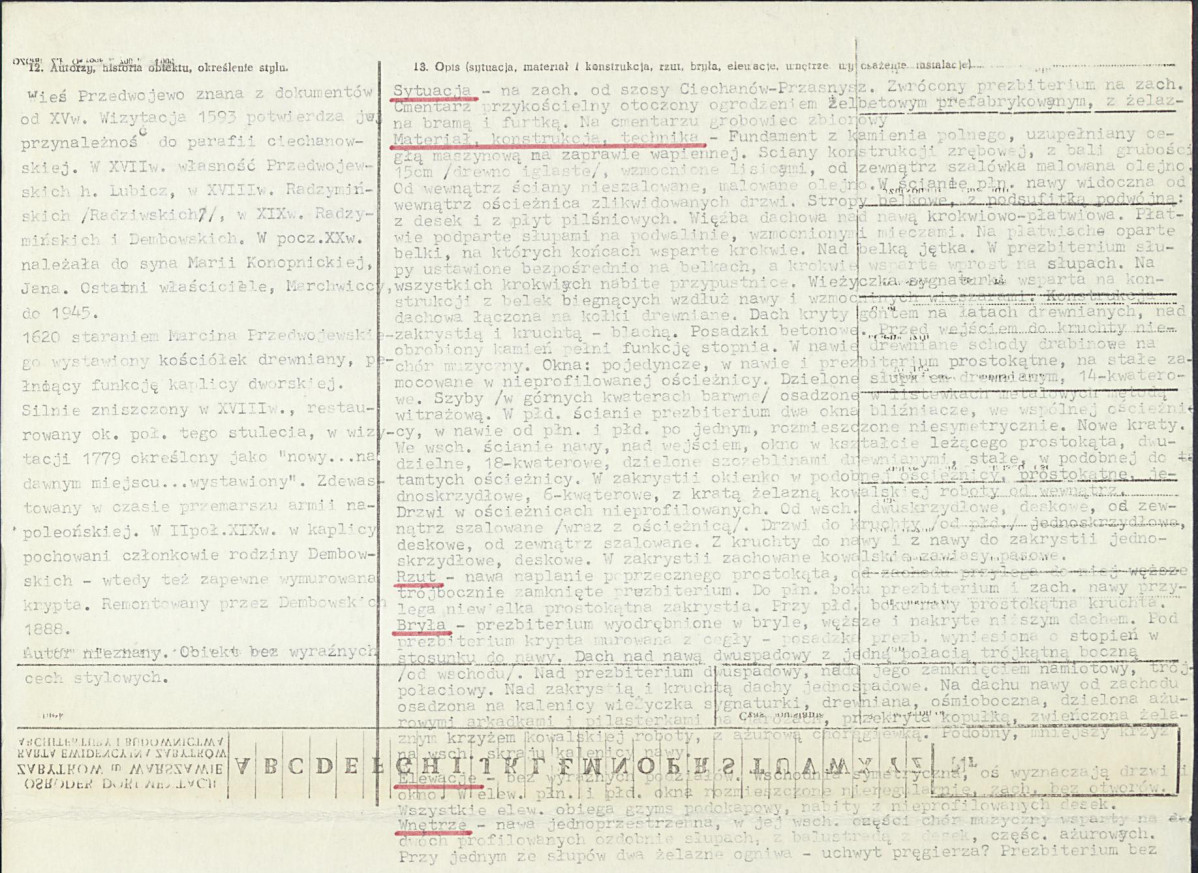 12. Autorzy, historia obiektu, określenie stylu.
Wieś Przedwojewo znana z dokumentów
od XVw. Wizytacja 1593 potwierdza jej
przynależność do parafii ciechanow-
skiej. W XVIIw. własność Przedwojew-
skich h. Lubicz, w XVIIIw. Radzymiń-
skich /Radziwskich?/, w XIXw. Radzy-
mińskich i Dembowskich. W pocz.XXw.
należała do syna Marii Konopnickiej,
Jana. Ostatni właściciele, Marchwiccy,
do 1945.
1620 staraniem Marcina Przedwojewskie-
go wystawiony kościółek drewniany, pe-
łniący funkcję kaplicy dworskiej.
Silnie zniszczony w XVIIIw., restau-
rowany ok. poł. tego stulecia, w wizy-
tacji 1779 określony jako "nowy...na
dawnym miejscu...wystawiony". Zdewas-
towany w czasie przemarszu armii na-
poleońskiej. W IIpoł.XIXw. w kaplicy
pochowani członkowie rodziny Dembow-
skich - wtedy też zapewne wymurowana
krypta. Remontowany przez Dembowskich
1888.
Autor nieznany. Obiekt bez wyraźnych
cech stylowych.
13. Opis (sytuacja, materiał i konstrukcja, rzut, bryła, elewacje, wnętrze, wyposażenie, instalacje)
Sytuacja - na zach. od szosy Ciechanów-Przasnysz. Zwrócony prezbiterium na zach.
Cmentarz przykościelny otoczony ogrodzeniem żelbetowym prefabrykowanym, z żelaz-
na bramą i furtką. Na cmentarzu grobowiec zbiorowy
Materiał, konstrukcja, technika - Fundament z kamienia polnego, uzupełniany ce-
głą maszynową na zaprawie wapiennej. Sciany konstrukcji zrębowej, z bali grubości
15cm /drewno iglaste/, wzmocnione lisicami, od zewnątrz szalówka malowana olejno.
Od wewnątrz ściany nieszalowane, malowane olejno. W ścianie płn. nawy widoczna od
wewnątrz ościeżnica zlikwidowanych drzwi. Stropy belkowe, z podsufitką podwójną:
z desek i z płyt pilśniowych. Więźba dachowa nad nawą krokwiowo-płatwiowa. Płat-
wie podparte słupami na podwalinie, wzmocnionymi mieczami. Na płatwiach oparte
belki, na których końcach wsparte krokwie. Nad belką jętka. W prezbiterium słu-
py ustawione bezpośrednio na belkach, a krokwie wsparte wprost na słupach. Na
wszystkich krokwiach nabite przypustnice. Wieżyczka sygnaturki wsparta na kon-
strukcji z belek biegnących wzdłuż nawy i wzmocnionych wieszarami. Konstrukcja
dachowa łączona na kołki drewniane. Dach kryty gontem na łatach drewnianych, nad
zakrystią i kruchtą - blachą. Posadzki betonowe. Przed wejściem do kruchty nie-
obrobiony kamień pełni funkcję stopnia. W nawie drewniane schody drabinowe na
chór muzyczny. Okna: pojedyncze, w nawie i prezbiterium prostokątne, na stałe za-
mocowane w nieprofilowanej ościeżnicy. Dzielone słupkiem drewnianym, 14-kwatero-
we. Szyby /w górnych kwaterach barwne/ osadzone w listewkach metalowych metodą
witrażową. W płd. ścianie prezbiterium dwa okna bliźniacze, we wspólnej ościeżni-
cy, w nawie od płn. i płd. po jednym, rozmieszczone niesymetrycznie. Nowe kraty.
We wsch. ścianie nawy, nad wejściem, okno w kształcie leżącego prostokąta, dwu-
dzielne, 18-kwaterowe, dzielone szczeblinami drewnianymi, stałe, w podobnej do
tamtych ościeżnicy. W zakrystii okienko w podobnej ościeżnicy, prostokątne, je-
dnoskrzydłowe, 6-kwaterowe, z kratą żelazną kowalskiej roboty od wewnątrz.
Drzwi w ościeżnicach nieprofilowanych. Od wsch. dwuskrzydłowe, deskowe, od zew-
nątrz szalowane /wraz z ościeżnicą/. Drzwi do kruchty /od płd./ jednoskrzydłowe,
deskowe, od zewnątrz szalowane. Z kruchty do nawy i z nawy do zakrystii jedno-
skrzydłowe, deskowe. W zakrystii zachowane kowalskie zawiasy pasowe.
Rzut - nawa naplanie poprzecznego prostokąta, od zachodu przylega do niej węższe
trójbocznie zamknięte prezbiterium. Do płn. boku prezbiterium i zach. nawy przy-
lega niewielka prostokątna zakrystia. Przy płd. boku nawy prostokątna kruchta.
Bryła - prezbiterium wyodrębnione w bryle, węższe i nakryte niższym dachem. Pod
prezbiterium krypta murowana z cegły - posadzka prezb. wyniesiona o stopień w
stosunku do nawy. Dach nad nawą dwuspadowy z jedną połacią trójkątną boczną
/od wschodu/. Nad prezbiterium dwuspadowy, nad jego zamknięciem namiotowy, trój-
połaciowy. Nad zakrystią i kruchtą dachy jednospadowe. Na dachu nawy od zachodu
osadzona na kalenicy wieżyczka sygnaturki, drewniana, ośmioboczna, dzielona ażu-
rowymi arkadkami i pilasterkami na narożach, przekryta kopułką, zwieńczona żela-
znym krzyżem kowalskiej roboty, z ażurową chorągiewką. Podobny, mniejszy krzyż
na wsch. skraju kalenicy nawy.
Elewacje - bez wyraźnych podziałów. Wschodnia symetryczna, oś wyznaczają drzwi i
okno. W elew. płn. i płd. okna rozmieszczone nieregularnie, zach. bez otworów.
Wszystkie elew. obiega gzyms podokapowy, nabity z nieprofilowanych desek.
Wnętrze - nawa jednoprzestrzenna, w jej wsch. części chór muzyczny wsparty na
dwóch profilowanych ozdobnie słupach, z balustradą z desek, część. ażurowych.
Przy jednym ze słupów dwa żelazne ogniwa - uchwyt pręgierza? Prezbiterium bez
ARCHITEKTURY I BUDOWNICTWA
KARTA EWIDENCYJNA ZABYTKÓW
ZABYTKÓW W WARSZAWIE
OŚRODEK DOKUMENTACJI
A B C D E F G H I J K L Ł M N O P R S T U V W X Y Z Nr